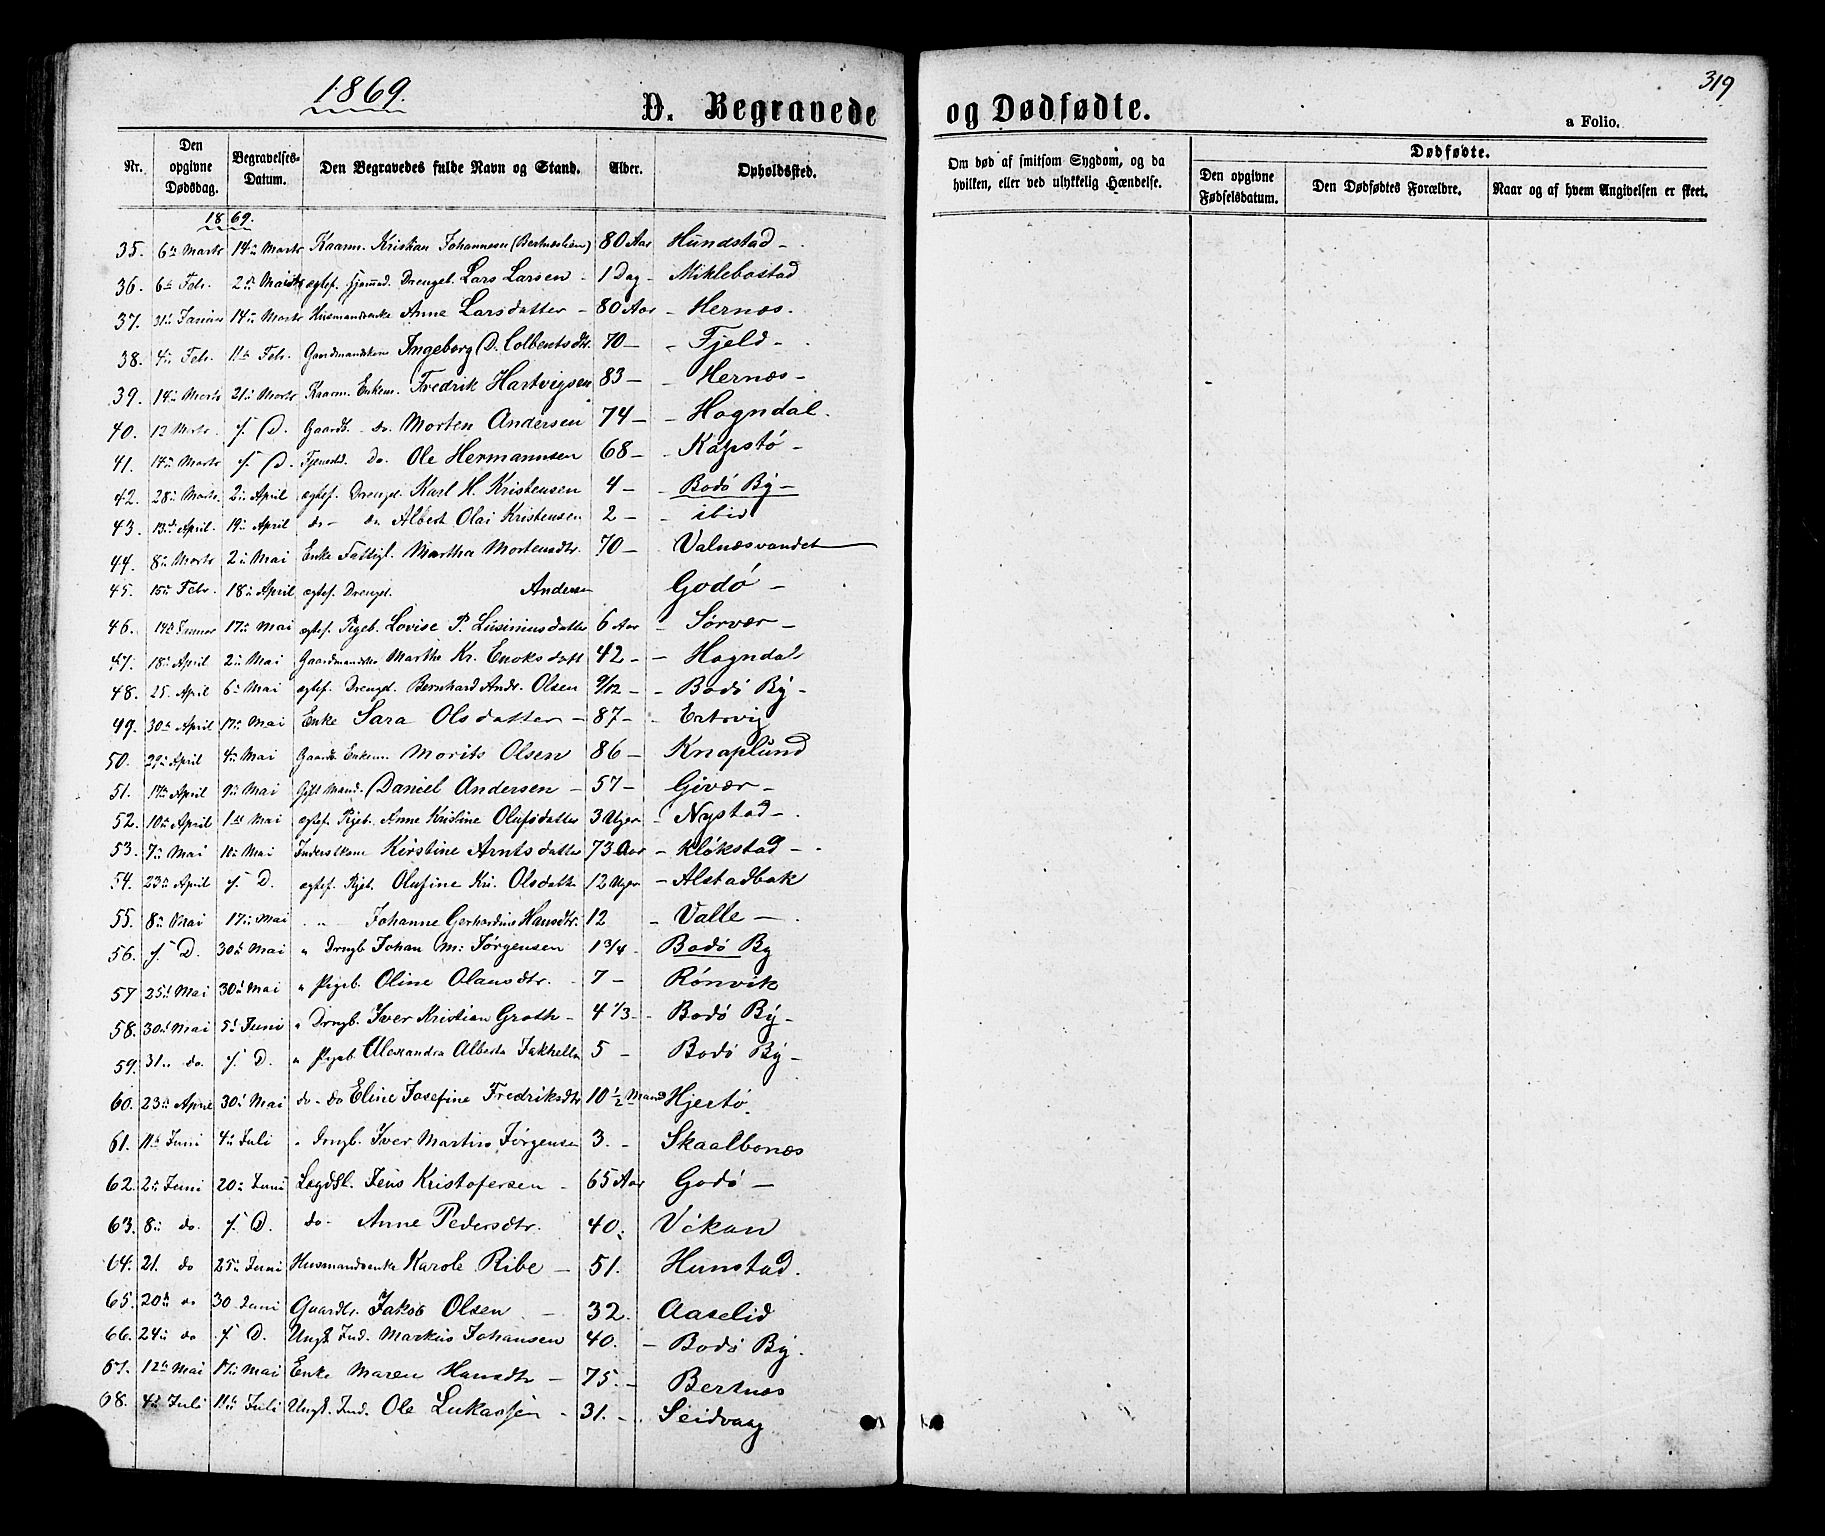 1869.
D. Begravede og Dødfødte.
319
a Folio.
Nr. Den opgivne Dødsdag. Begravelses-Datum. Den Begravedes fulde Navn og Stand. Alder. Opholdssted. Om død af smitsom Sygdom, og da hvilken, eller ved ulykkelig Hændelse. Dødfødte. Den opgivne Fødselsdatum. Den Dødfødtes Forældre. Naar og af hvem Angivelsen er skeet.
1869.
35. 6te Marts 14de Marts Kaarm. Kristian Johannesen (Bertneslien) 80 Aar Hundstad -
36. 6te Febr. 2den Maidg ægtef. Hjemmed. Drengeb. Lars Larsen - 1 Dag - Miklebostad
37. 31te Januar 14de Marts Husmandsenke Anne Larsdatter - 80 Aar - Hernæs.
38. 4de Febr. 11te Febr. Gaardmandskone Ingeborg D. Colbentsdtr. 70 - - Fjeld -
39. 14de Marts 21de Marts Kaarm. Enkem. Fredrik Hartvigsen 83 - - Hernæs -
40. 12 Marts f. D. Gaardb. do. Morten Andersen 74 - - Hogndal.
41. 17de Marts f. D. Tjenestd. do. Ole Hermannsen 68 - - Kapstø -
42. 28de Marts 2den April ægtef. Drengeb. Karl H. Kristensen 4 - - Bodø By -
43. 13de April. 19de April do - do Albert Olai Kristensen 2 - - ibid
44. 8de Marts 2den Mai Enke Fattigl. Martha Mortensdtr. 70 - Valnæsvandet
45. 15de Febr. 18de April ægtef. Drengeb. Andersen Godø -
46. 14de Januar 17de Mai ægtef. Pigeb. Lovise P. Lusiniusdatter 6 Aar - Sørvær -
47. 18de April 2den Mai Gaardmandsko Marthe Kr. Enoksdatt 42 - - Hogndal
48. 25. April 6te Mai ægtef. Drengeb. Bernhard Andr. Olsen 9/12 - - Bodø By -
49. 30te April 17de Mai Enke Sara Olsdatter - 87 - - Ertsvig
50. 29de April 4de Mai Gaardb. Enkem. Morits Olsen 86 - Knaplund
51. 17de April 9de Mai Gift Mand. Daniel Andersen - 57 - Givær -
52. 10de April 1ste Mai ægtef. Pigeb. Anne Kristine Olufsdatter 3 Uger - Nystad -
53. 7de Mai 10de Mai Inderstkone Kirstine Arntsdatter 73 Aar - Kløkstad -
54. 23de April f. D. ægtef. Pigeb. Olufine Kr. Olsdatte 12 Uger - Alstadbak
55. 8de Mai 17de Mai " " Johanne Gerhardine Hansdtr. 12 - Valle -
56. f. D. 30te Mai " Drngb. Johan M. Jørgensen 1 3/4 - Bodø By
57 25de Mai 30te Mai " Pigeb. Oline Olausdtr. - 7 - Rønvik
58. 30te Mai 5te Juni " Drngb. Iver Kristian Groth - 4 1/3 - Bodø By -
59. 31. do. f. D. " Pigeb. Alexandra Alberta Jakhelln 5 - Bodø By -
60. 23de April 30te Mai do - do Eline Josefine Fredriksdtr 10 1/2 Maand Hjertø.
61. 11te Juni 4de Juli " Drngb. Iver Martin Jørgensen 3. - Skaalbones
62. 2den Juni 20de Juni Lægdsl. Jens Kristofersen - 65 Aar Godø -
63. 8de do f. D. do - Anne Pedersdtr. 40. Vikan
64. 21. do 25de Juni Husmandsenke Karole Ribe - 51. Hunstad.
65. 20de do 30 Juni Gaardbr. Jakob Olsen - 32. Aaselid
66. 24de do f D. Ungk. Ind. Markus Johansen 40. - Bodø By.
67. 12te Mai 17de Mai Enke Maren Hansdtr - 75. - Bertnes
68. 4de Juli 11te Juli Ungk. Ind. Ole Lukassen - 31. - Seidvaag